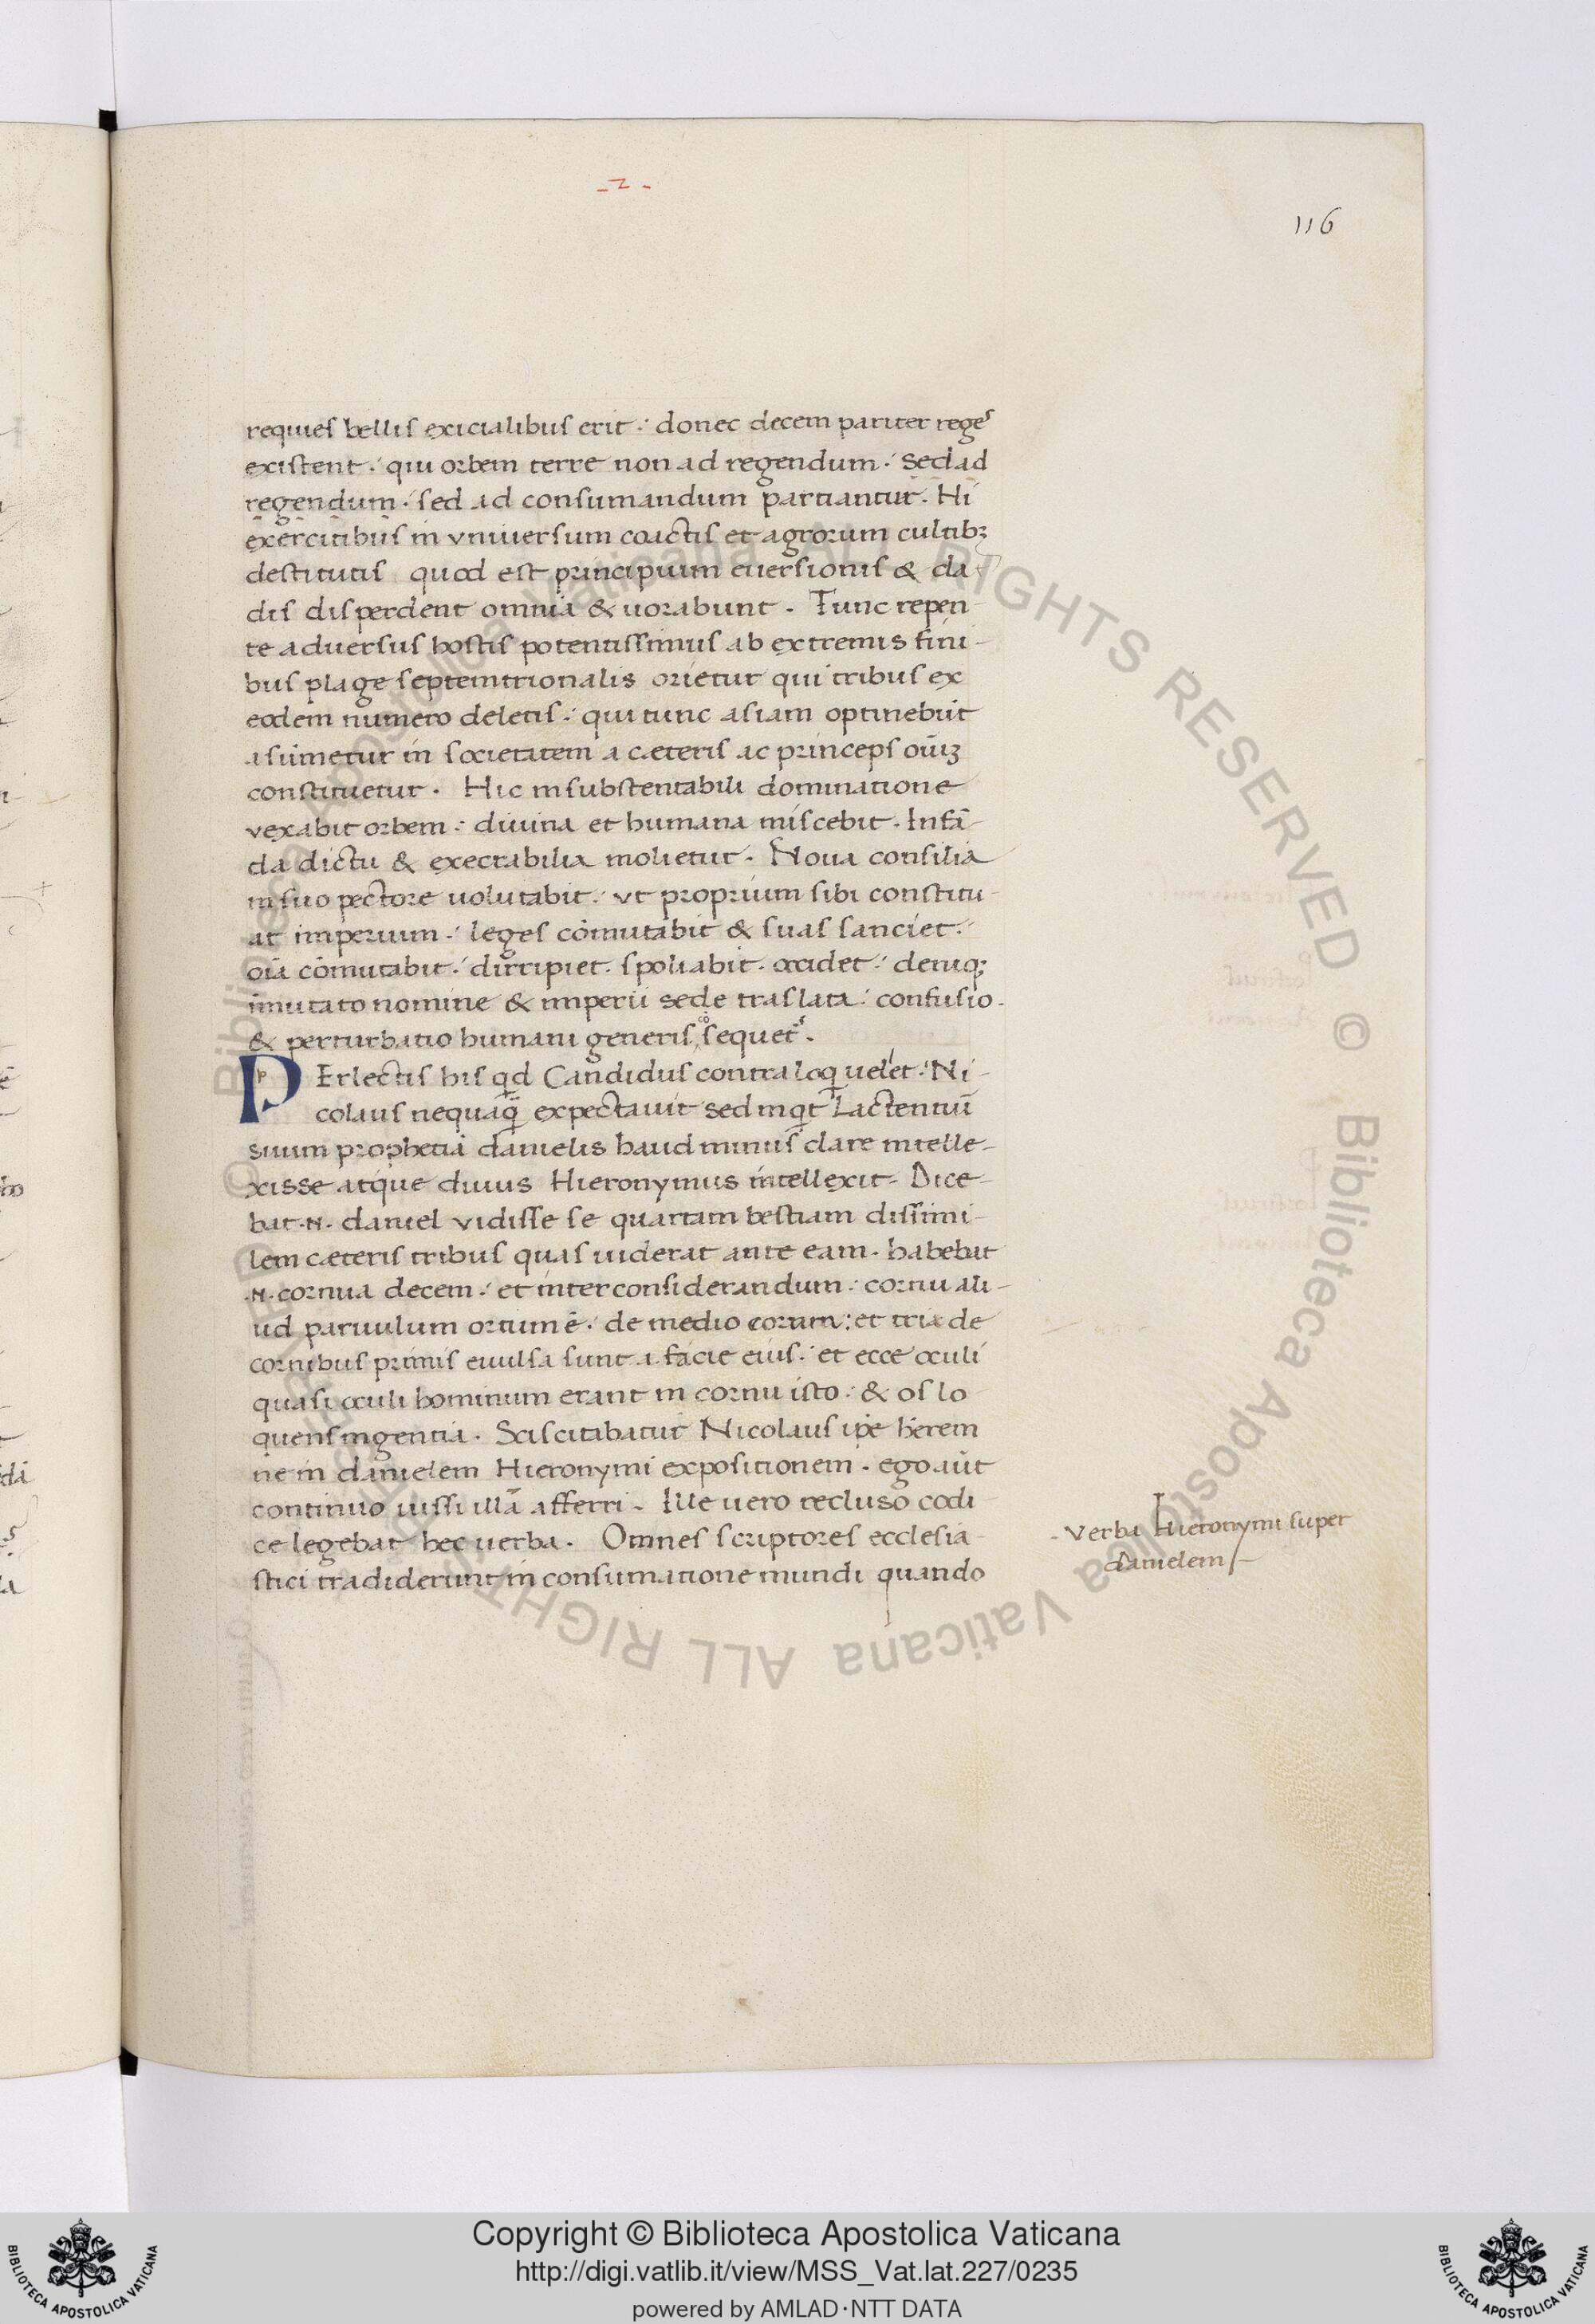 -2-
116
requies bellis exicialibus erit: donec decem pariter reges
existent: qui orbem terre non ad regendum: sed ad
regendum: sed ad consumandum partiantur. Hi
exercitibus in vniuersum coactis et agrorum cultibꝫ
destitutis quod est principium euersionis & cla
dis disperdent omnia & uorabunt. Tunc repen-
te aduersus hostis potentissimus ab extremis fini-
bus plage septemtrionalis orietur qui tribus ex
eodem numero deletis: qui tunc asiam optinebūt
asūmetur in societatem a cæteris ac princeps oīuꝫ
constituetur. Hic insubstentabili dominatione
vexabit orbem: diuina et humana miscebit. Infā-
da dictu & execrabilia molietur. Noua consilia
in suo pectore uolutabit: vt proprium sibi constitu-
at imperium: leges cōmutabit & suas sanciet:
oīa cōmutabit: dirripiet. spoliabit. occidet: deniqꝫ
īmutato nomine & imperii sede traslata: confusio-
& perturbatio humani generis seque​t.
P Erlectis his qd Candidus contra loqueret: Ni-
colaus nequaq̄ expectauit sed inqt Lactentiū
suum prophetiā danielis haud minus clare intelle-
xisse atque diuus Hieronymus intellexit. Dice-
bat .N. daniel vidisse se quartam bestiam dissimi-
lem cæteris tribus quas uiderat ante eam. habebat
.N. cornua decem: et inter considerandum: cornu ali-
ud paruulum ortum ē. de medio eorum: et tria de
cornibus primis euulsa sunt a facie eius: et ecce oculi
quasi oculi hominum erant in cornu isto: & os lo
quens ingentia. Sciscitabatur Nicolaus ipē hērem
ne in danielem Hieronymi expositionem. ego aūt
continuo iussi illā afferri. Ille uero recluso codi
ce legebat hec uerba. Omnes scriptores ecclesia-
stici tradiderunt in consumatione mundi quando
-Verba Hieronymi super
danielem
© Biblioteca Apostolica Vaticana ALL RIGHTS RESERVED © Biblioteca Apostolica Vaticana ALL RIGHTS RESERVED
Copyright © Biblioteca Apostolica Vaticana
http://digi.vatlib.it/view/MSS_Vat.lat.227/0235
powered by AMLAD·NTT DATA
BIBLIOTECA APOSTOLICA VATICANA
BIBLIOTECA APOSTOLICA VATICANA